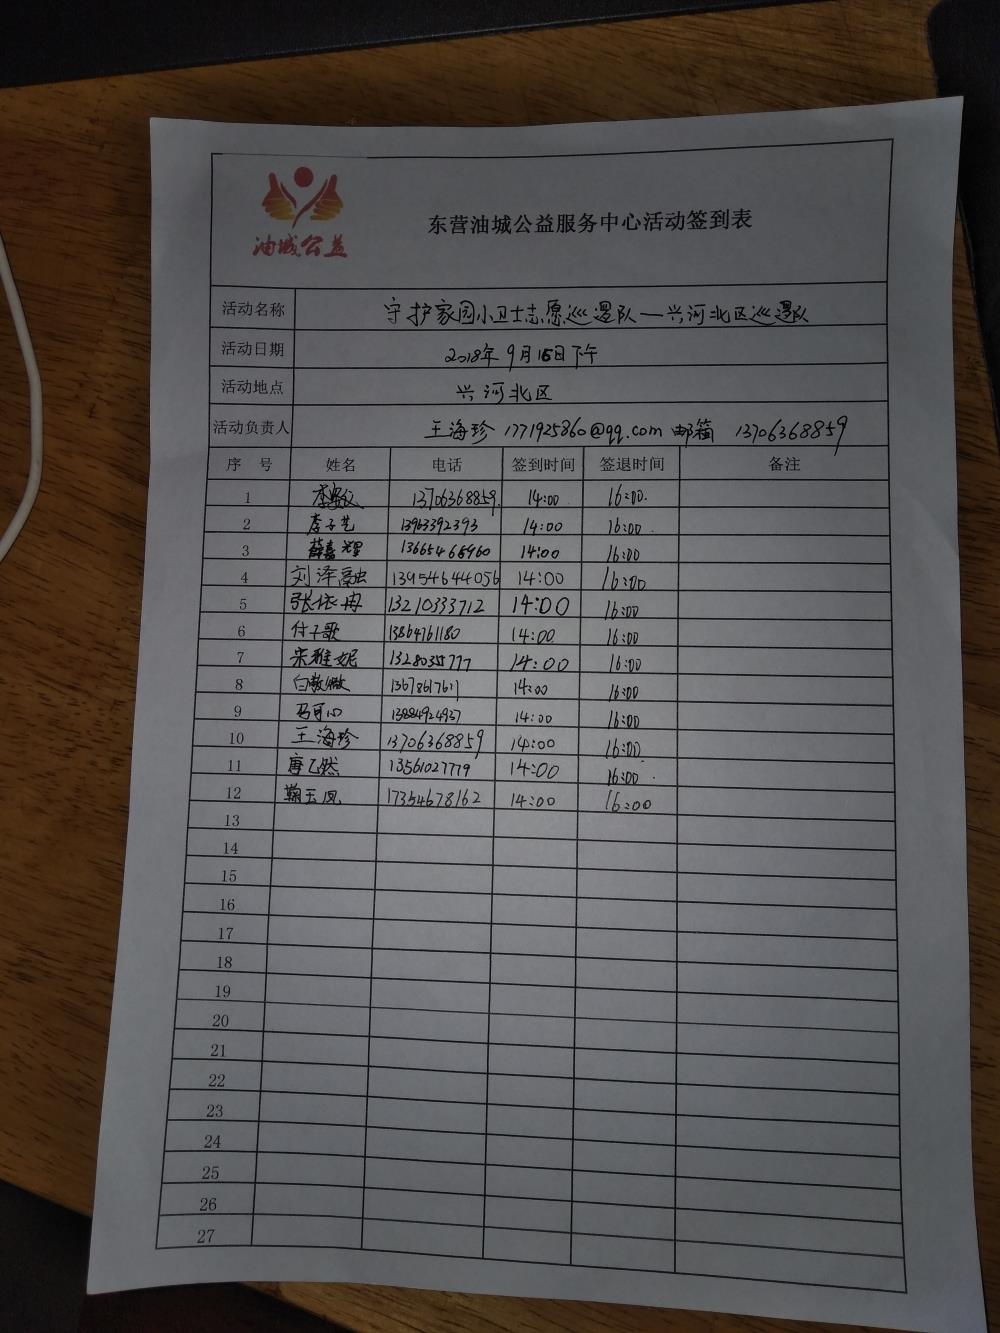 油城公益
东营油城公益服务中心活动签到表
活动名称 守护家园小卫士志愿巡逻队—兴河北区巡逻队
活动日期 2018年9月15日下午
活动地点 兴河北区
活动负责人 王海珍 1771925860@qq.com 邮箱 13706368859
序号 姓名 电话 签到时间 签退时间 备注
1 13706368859 14:00 16:00
2 李子艺 13963392393 14:00 16:00
3 薛嘉耀 13665468960 14:00 16:00
4 刘泽融 13954644056 14:00 16:00
5 张依冉 13210333712 14:00 16:00
6 付子歌 13864761180 14:00 16:00
7 宋雅妮 14:00 16:00
8 13678617611 14:00 16:00
9 马可心 13884924937 14:00 16:00
10 王海珍 13706368859 14:00 16:00
11 唐乙然 13561027779 14:00 16:00
12 鞠玉凤 17354678162 14:00 16:00
13
14
15
16
17
18
19
20
21
22
23
24
25
26
27